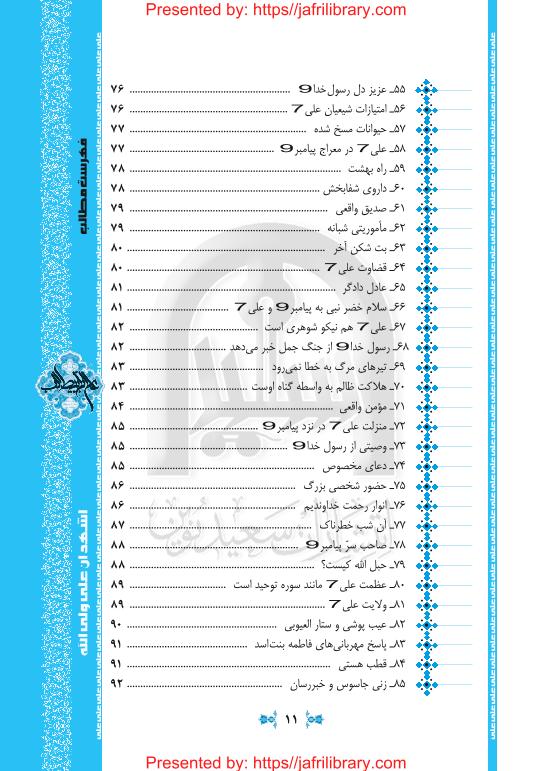 Presented by: https://jafrilibrary.com
۵۵ـ عزیز دل رسول‌خدا9 ........ ۷۶
۵۶ـ امتیازات شیعیان علی7 ........ ۷۶
۵۷ـ حیوانات مسخ شده ........ ۷۷
۵۸ـ علی7 در معراج پیامبر9 ........ ۷۷
۵۹ـ راه بهشت ........ ۷۸
۶۰ـ داروی شفابخش ........ ۷۸
۶۱ـ صدیق واقعی ........ ۷۹
۶۲ـ مأموریتی شبانه ........ ۷۹
۶۳ـ بت شکن آخر ........ ۸۰
۶۴ـ قضاوت علی7 ........ ۸۰
۶۵ـ عادل دادگر ........ ۸۱
۶۶ـ سلام خضر نبی به پیامبر9 و علی7 ........ ۸۱
۶۷ـ علی7 هم نیکو شوهری است ........ ۸۲
۶۸ـ رسول خدا9 از جنگ جمل خبر می‌دهد ........ ۸۲
۶۹ـ تیرهای مرگ به خطا نمی‌رود ........ ۸۳
۷۰ـ هلاکت ظالم به واسطه گناه اوست ........ ۸۳
۷۱ـ مؤمن واقعی ........ ۸۴
۷۲ـ منزلت علی7 در نزد پیامبر9 ........ ۸۵
۷۳ـ وصیتی از رسول خدا9 ........ ۸۵
۷۴ـ دعای مخصوص ........ ۸۵
۷۵ـ حضور شخصی بزرگ ........ ۸۶
۷۶ـ انوار رحمت خداوندیم ........ ۸۶
۷۷ـ آن شب خطرناک ........ ۸۷
۷۸ـ صاحب سرّ پیامبر9 ........ ۸۸
۷۹ـ حبل الله کیست؟ ........ ۸۸
۸۰ـ عظمت علی7 مانند سوره توحید است ........ ۸۹
۸۱ـ ولایت علی7 ........ ۸۹
۸۲ـ عیب پوشی و ستار العیوبی ........ ۹۰
۸۳ـ پاسخ مهربانی‌های فاطمه بنت‌اسد ........ ۹۱
۸۴ـ قطب هستی ........ ۹۱
۸۵ـ زنی جاسوس و خبررسان ........ ۹۲
۱۱
فهرست مطالب
اشهد ان علی ولی الله
Presented by: https://jafrilibrary.com